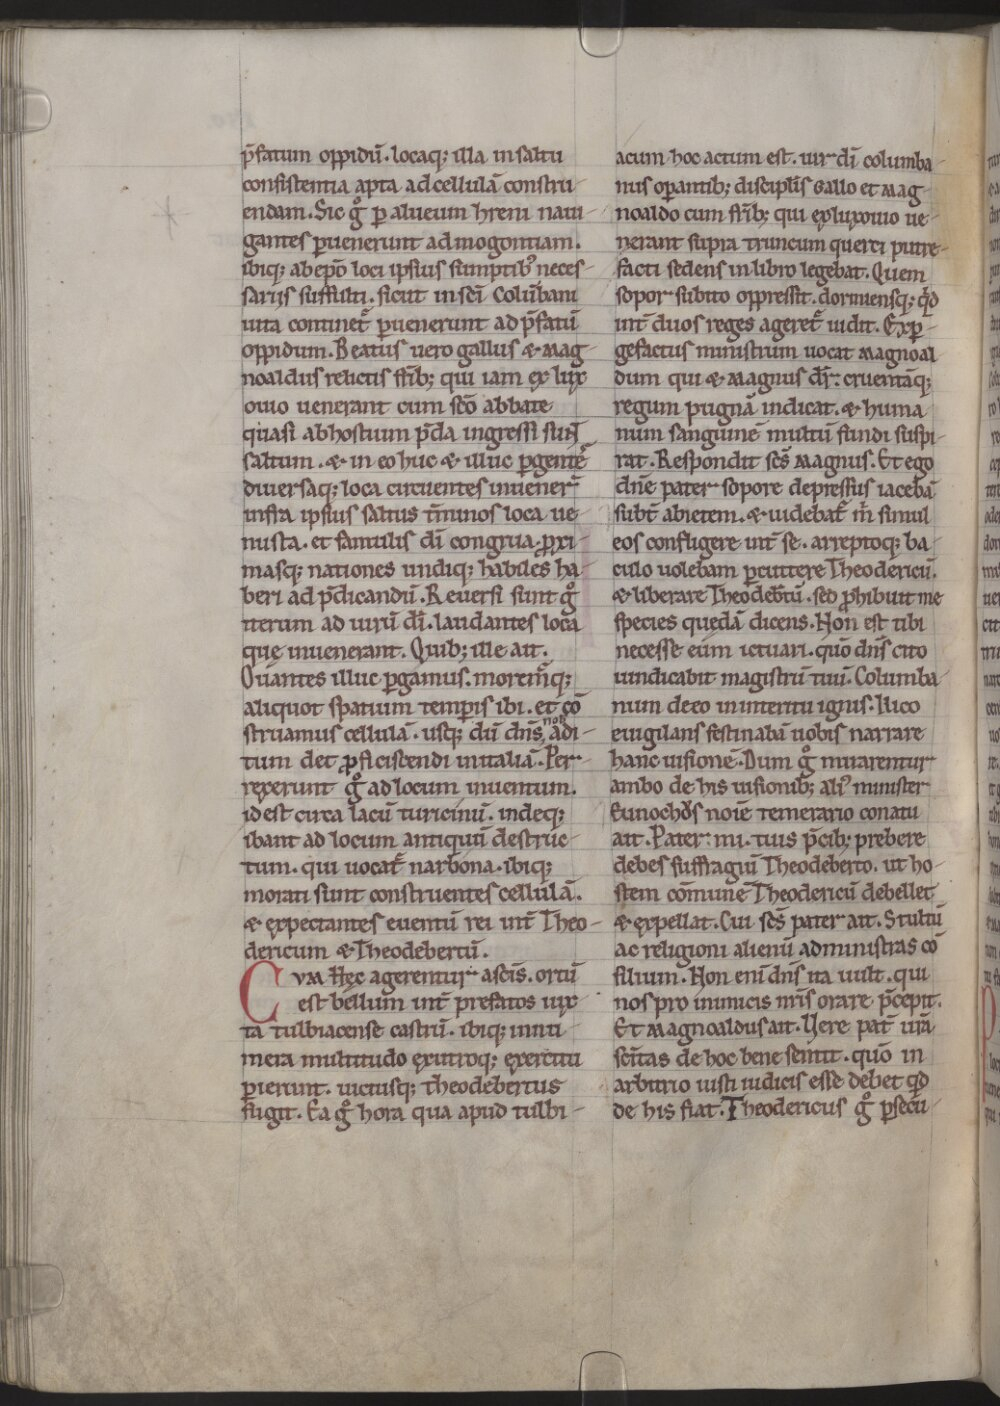 p̄fatum oppidū. locaq; illa insaltu
consistentia apta adcellulā constru-
endam. Sic gͦ p̱ alueum hreni naui-
gantes p̱uenerunt admogontiam.
ibiq; abep̄o loci ipsius sumptib; neces-
sarijs suffulti. sicut insc̄i Colūbani
uita continet᷑ p̱uenerunt ad p̄fatū
oppidum. Beatus uero gallus & mag-
noaldus relictis fr̄ib; qui iam ex lux
ouio uenerant cum sc̄o abbate
quasi abhostium p̄da ingressi sunt
saltum. & in eo huc & illuc p̱gentes
diuersaq; loca circuentes inuener᷑
infra ipsius saltus t̄minos loca ue-
nusta. et famulis dī congrua. p̱xi-
masq; nationes undiq; habiles ha-
beri ad p̄dicandū. Reuersi sunt gͦ
iterum ad uirū dī. laudantes loca
que inuenerant. Quib; ille ait.
Ouantes illuc p̱gamus. morem᷑q;
aliquot spatium temp̱is ibi. et cō
struamus cellulā. usq; dū dn̄s nob̄ adi-
tum det p̱ficiscendi initaliā. Per-
rexerunt gͦ ad locum inuentum.
idest circa lacū turicinū. indeq;
ibant ad locum antiquū destruc-
tum. qui uocat᷑ narbona. ibiq;
morati sunt construentes cellulā.
& expectantes euentū rei int̄ Theo-
dericum & Theodebertū.
CVM Hęc agerentur ascīs. ortū
est bellum int̄ prefatos iux
ta tulbiacense castrū. ibiq; innu
mera multitudo exutroq; exercitu
p̱ierunt. uictusq; theodebertus
fugit. Ea gͦ hora qua apud tulbi-
acum hoc actum est. uir dī columba-
nus op̱antib; disciplīs Gallo et Mag-
noaldo cum fr̄ib; qui exluxouio ue-
nerant supra truncum querci putre-
facti sedens inlibro legebat. Quem
sopor subito oppressit. dormiensq; q̇d
int̄ duos reges ageret᷑ uidit. Exp̱-
gefactus ministrum uocat Magnoal
dum qui & Magnus dr̄: cruentāq;
regum pugnā indicat. & huma
num sanguinē multū fundi suspi-
rat. Respondit sc̄s Magnus. Et ego
dn̄e pater sopore depressus iacebā
subt̄ abietem. & uidebat᷑ m̄ simul
eos confligere int̄ se. arreptoq; ba-
culo uolebam p̱cutere Theodericū.
& liberare Theodeb̄tū. sed p̱hibuit me
species quedā dicens. Non est tibi
necesse eum ictuari. quō dn̄s cito
uindicabit magistrū tuū. Columba-
num deeo ininteritu ignis. Ilico
euigilans festinabā uobis narrare
hanc uisionē. Dum gͦ mirarentur
ambo de his uisionib; aliꝰ minister
Eunochd̄s noīe temerario conatu
ait. Pater mi. tuis p̄cib; prebere
debes suffragiū Theodeberto. ut ho-
stem com̄une Theodericū debellet
& expellat. Cui sc̄s pater ait. Stultū
ac religioni alienū administras cō
silium. Non enī dn̄s ita uult. qui
nos pro inimicis nr̄is orare p̄cepit.
Et Magnoaldus ait. Vere pat̄ ur̄a
sc̄itas de hoc bene sentit. quō in
arbitrio iusti iudicis esse debet qd̄
de his fiat. Theodericus gͦ p̱secū-